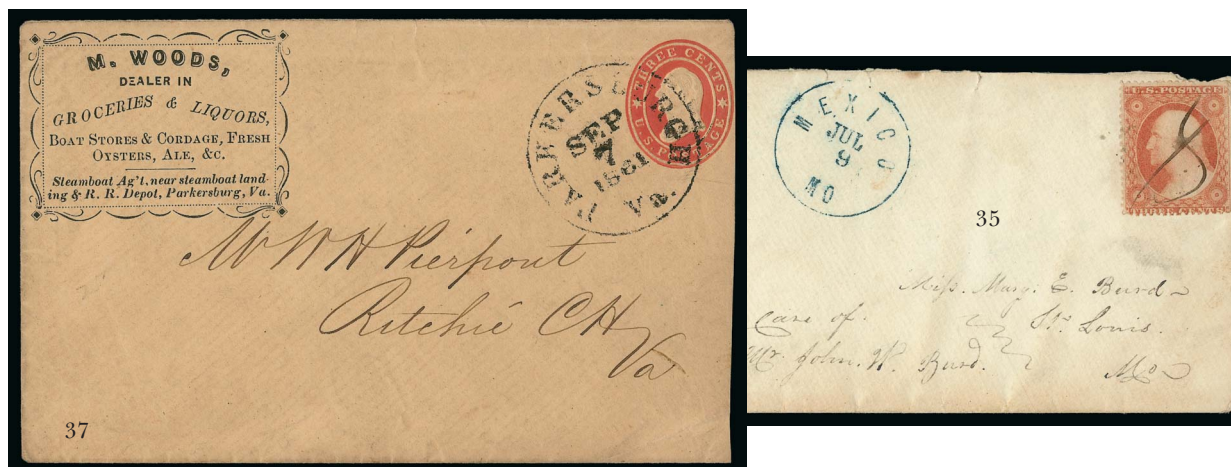 M. WOODS,
DEALER IN
GROCERIES & LIQUORS,
BOAT STORES & CORDAGE, FRESH
OYSTERS, ALE, &C.
Steamboat Ag't, near steamboat land-
ing & R. R. Depot, Parkersburg, Va.
THREE CENTS
U.S. POSTAGE
PARKERSBURGH
SEP
7
1861
Va.
Mr W H Pierpont
Ritchie C H
Va
37
MEXICO
JUL
9
MO
U.S. POSTAGE
35
Miss. Mary. E. Burd
Care of
St. Louis.
Mr John. W. Burd.
Mo